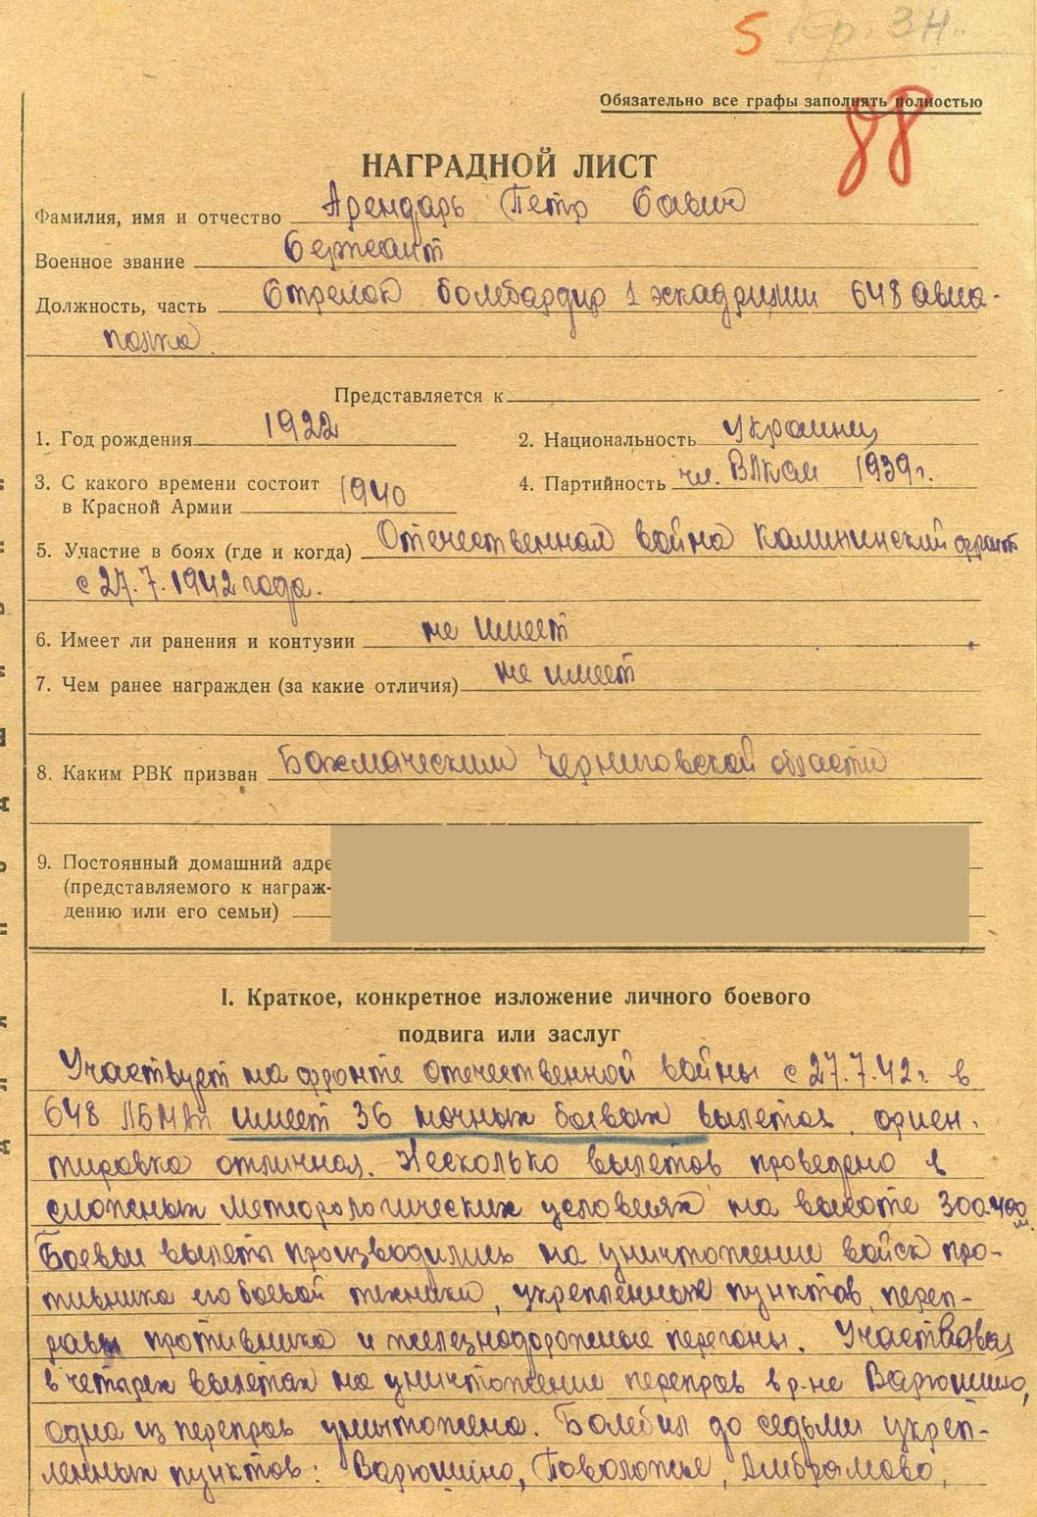 5 Кр. Зн.
Обязательно все графы заполнять полностью
88
НАГРАДНОЙ ЛИСТ
Фамилия, имя и отчество Арендарь Петр Савич
Военное звание Сержант
Должность, часть Стрелок бомбардир 1 эскадрилии 648 авиа-
полка.
Представляется к
1. Год рождения 1922 2. Национальность Украинец
3. С какого времени состоит в Красной Армии 1940 4. Партийность чл. ВЛКСМ 1939г.
5. Участие в боях (где и когда) Отечественная война Калининский фронт
с 27.7.1942 года.
6. Имеет ли ранения и контузии не имеет
7. Чем ранее награжден (за какие отличия) не имеет
8. Каким РВК призван Бахмаческим Черниговской области
9. Постоянный домашний адре
(представляемого к награж-
дению или его семьи)
I. Краткое, конкретное изложение личного боевого
подвига или заслуг
Участвует на фронте отечественной войны с 27.7.42г. в
648 ЛБНАП имеет 36 ночных боевых вылетов, ориен-
тировка отличная. Несколько вылетов проведено в
сложных метеорологических условиях на высоте 300-400 м.
Боевые вылеты производились на уничтожение войск про-
тивника его боевой техники, укрепленных пунктов, переп-
равы противника и железнодорожные перегоны. Участвовал
в четырех вылетах на уничтожение переправ в р-не Варюшино,
одна из переправ уничтожена. Бомбил до седьми укреп-
ленных пунктов: Варюшино, Поволожье,